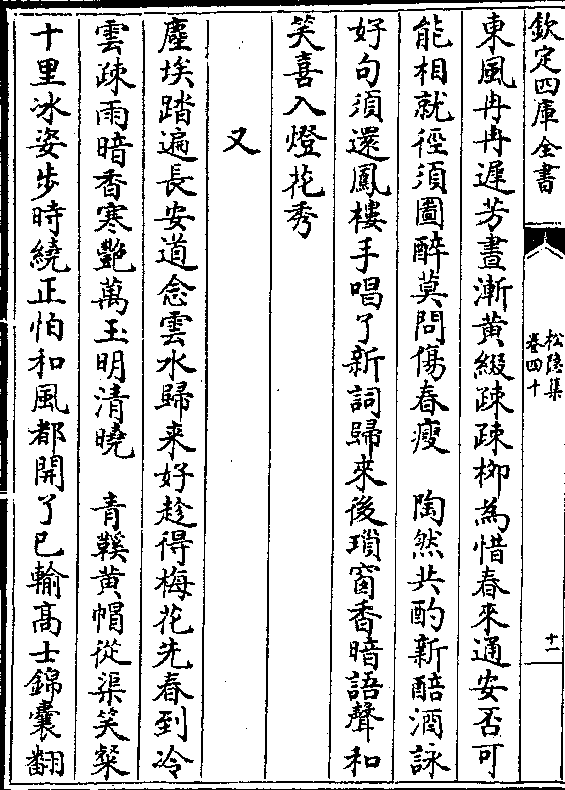 欽定四庫全書
松隱集
卷四十
十一
東風冉冉遲芳晝漸黄綴疎疎柳為惜春來通安否可
能相就徑須圖醉莫問傷春瘦　陶然共酌新醅酒詠
好句須還鳳樓手唱了新詞歸來後瑣窗香暗語聲和
笑喜入燈花秀
又
塵埃踏遍長安道念雲水歸来好趁得梅花先春到冷
雲疎雨暗香寒艷萬玉明清曉　青鞵黄帽從渠笑粲
十里冰姿步時繞正怕和風都開了已輸高士錦囊翻